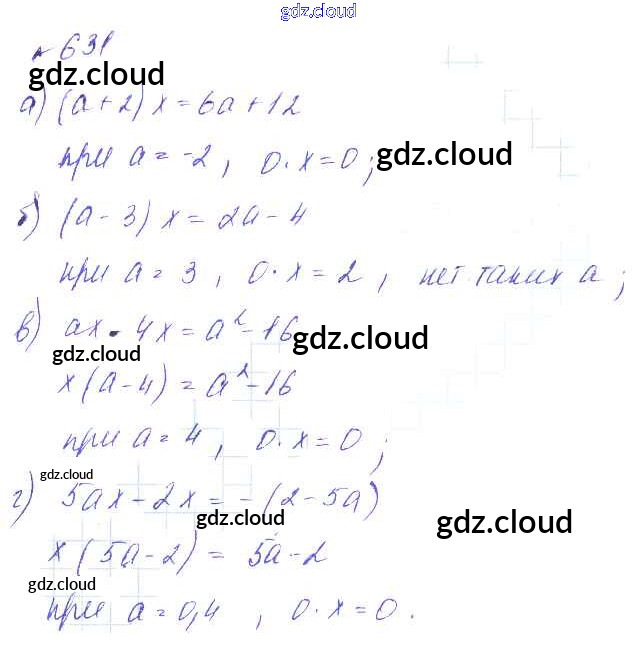 gdz.cloud
№ 631
gdz.cloud
а) (a+2)x = 6a+12
при a = -2, 0·x = 0;
gdz.cloud
б) (a-3)x = 2a-4
при a = 3, 0·x = 2, нет таких a;
в) ax - 4x = a²-16
gdz.cloud
gdz.cloud
x(a-4) = a²-16
при a = 4, 0·x = 0;
gdz.cloud
г) 5ax - 2x = -(2-5a)
gdz.cloud
gdz.cloud
x(5a-2) = 5a-2
gdz.cloud
при a = 0,4, 0·x = 0.